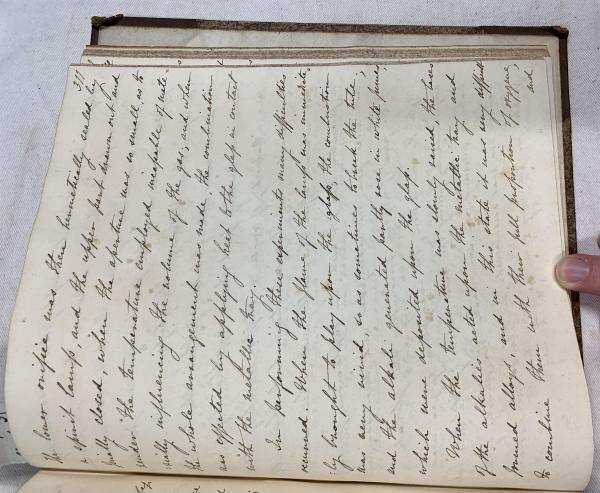 311
The lower orifice was then hermetically sealed by
a spirit lamp, and the upper part drawn out and
finally closed, when the aperture was so small, as to
render the temperature employed incapable of mate-
rially influencing the volume of the gas; and when
the whole arrangement was made, the combination
was effected by applying heat to the glass in contact
with the metallic tray.
In performing these experiments many difficulties
occurred. When the flame of the lamp was immediate-
ly brought to play upon the glass, the combustion
was very vivid so as sometimes to break the tube;
and the alkali generated partly rose in white fumes,
which were deposited upon the glass.
When the temperature was slowly raised, the bases
of the alkalies acted upon the metallic tray and
formed alloys, and in this state it was very difficult
to combine them with their full proportion of oxygen;
and